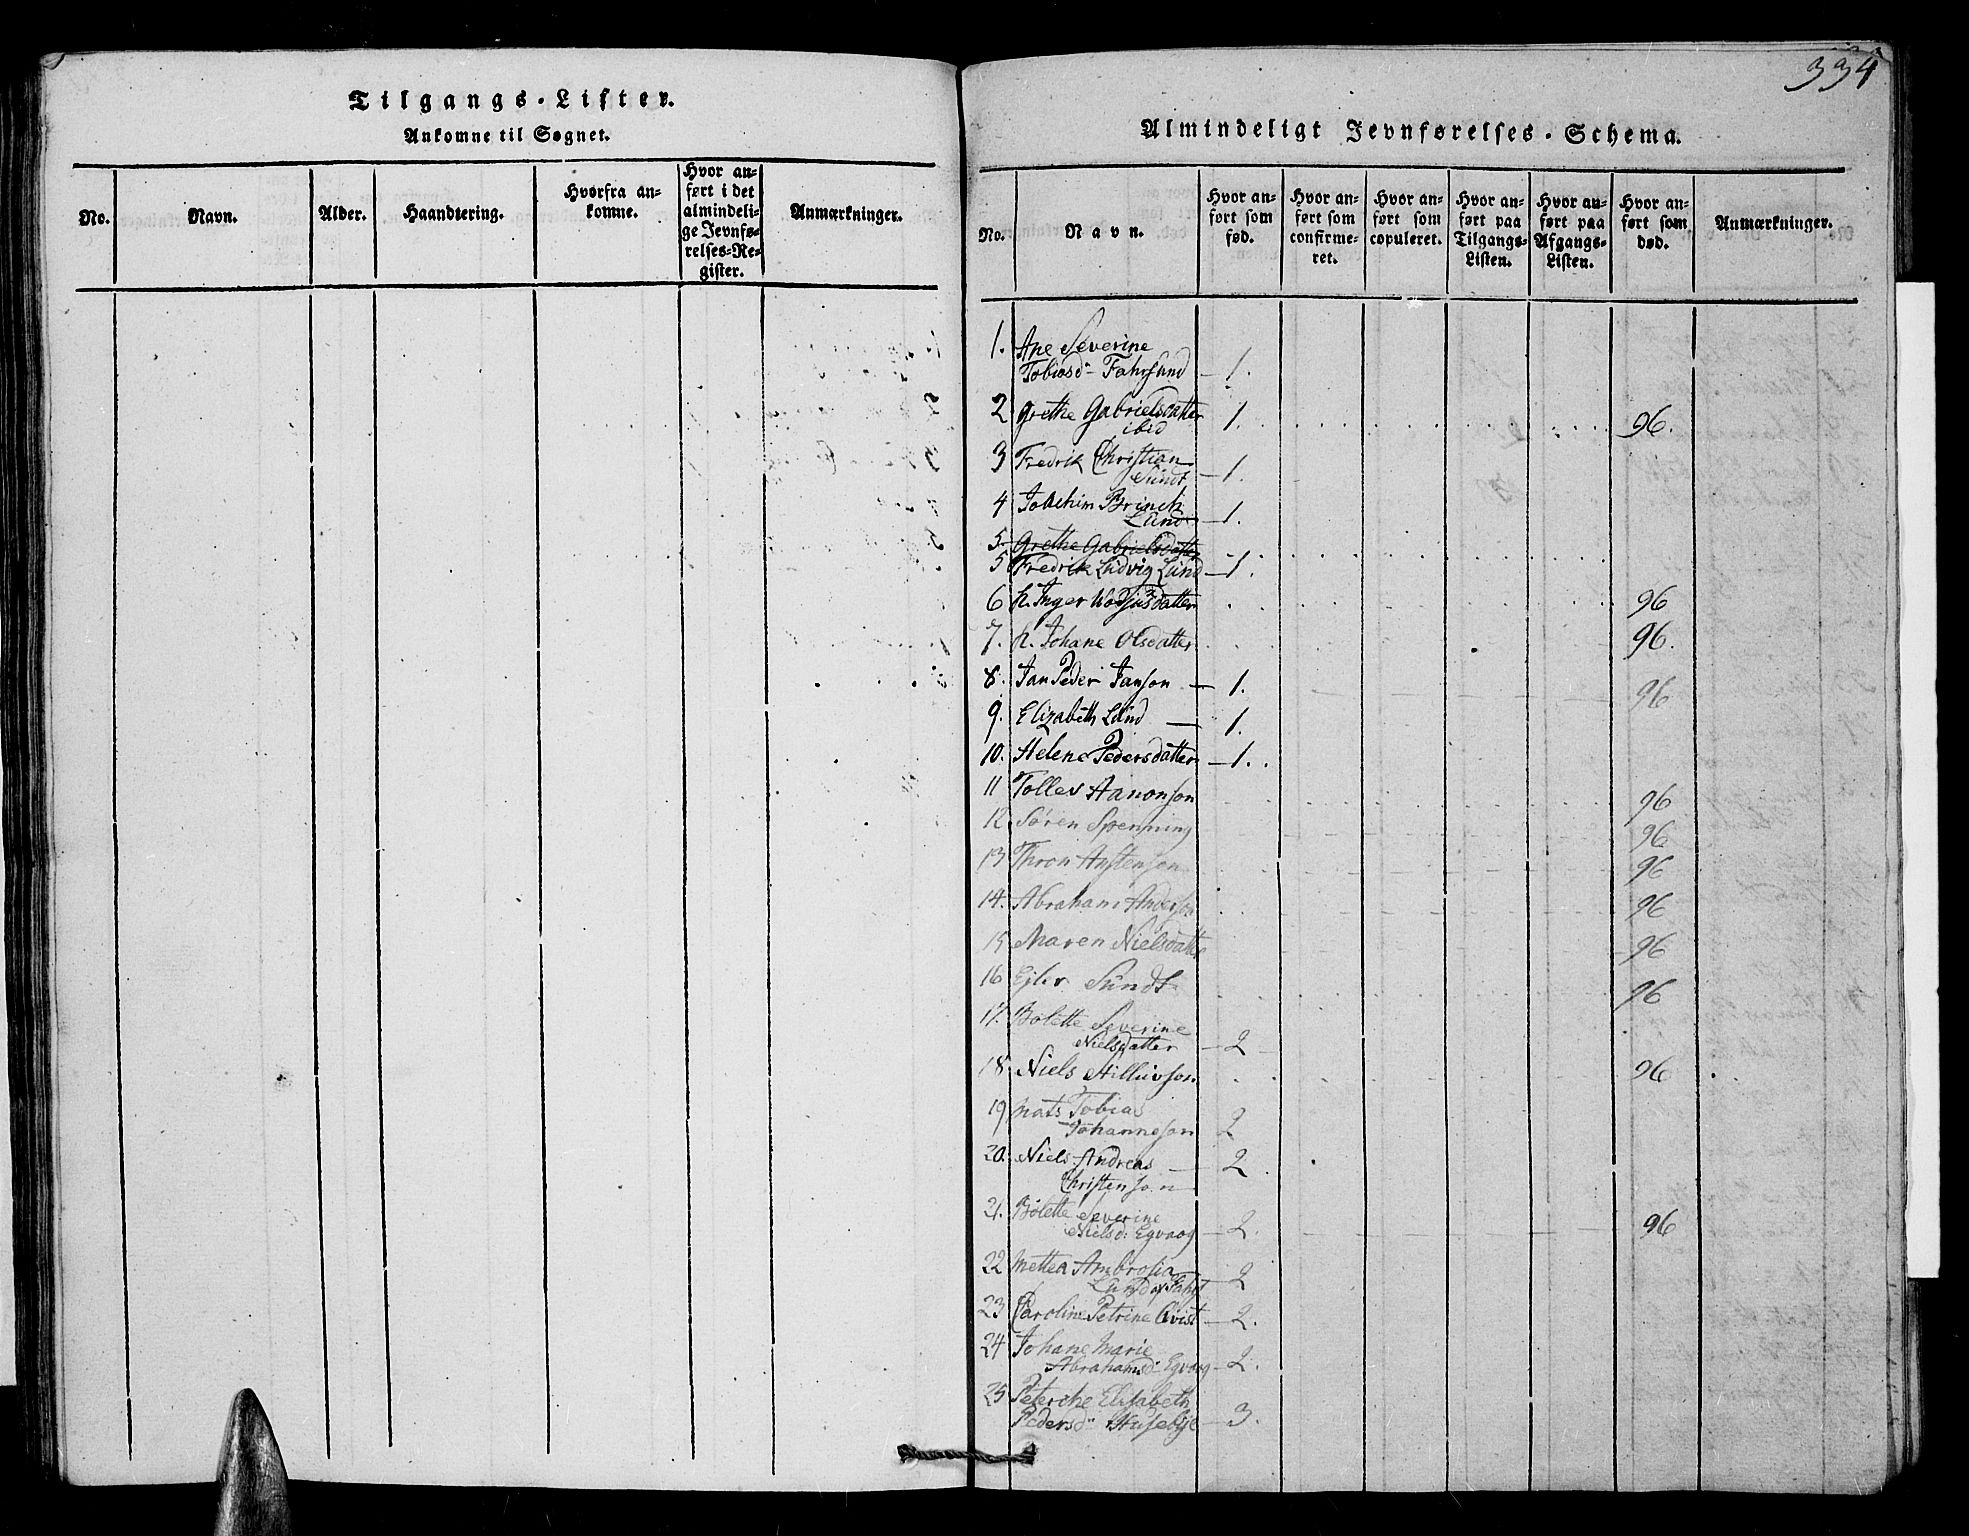 Tilgangs-Lister.
Ankomne til Sognet.
No.
Navn.
Alder.
Haandtering.
Hvorfra an-
komne.
Hvor an-
ført i det
almindeli-
ge Jevnfø-
relses-Re-
gister.
Anmærkninger.
334
Almindeligt Jevnførelses-Schema.
No.
Navn.
Hvor an-
ført som
fød.
Hvor an-
ført som
confirme-
ret.
Hvor an-
ført som
copuleret.
Hvor an-
ført paa
Tilgangs-
Listen.
Hvor an-
ført paa
Afgangs-
Listen.
Hvor an-
ført som
død.
Anmærkninger.
1. Ane Severine
Tobiasd. Fahrsund — 1.
2 Grethe Gabrielsdatter 1. 96.
ibid
3 Fredrik Christian
Sundt — 1.
4 Joachim Brinch
Lund — 1.
5. Grethe Gabrielsdatter
5 Fredrik Ludvig Lund — 1.
6 h. Inger datter 96
7. h. Johane Olsdatter 96.
8. Jan Peder Janson — 1. 96
9. Elizabeth Lund — 1.
10. Helene Pedersdatter — 1.
11 Tollev Aanonson 96
12 Søren Spenning 96
13 Thron Austenson 96
14. Abraham Anderson 96
15 Maren Nielsdatter 96
16 Ejler Sundt 96
17. Bolette Severine
Nielsdatter — 2
18. Niels 96
19 Mats Tobias
Johanneson 2
20. Niels Andreas — 2
Christenson
21. Bolette Severine
Nielsd: Egvaag — 2. 96
22 Mettea Ambrosia
Lund af Fahrs 2
23 Caroline Petrine Qvist — 2.
24 Johane Marie
Abrahamsd: Egvaag — 2.
25 Peterche Elisabeth
Pedersd. Husebye — 3.